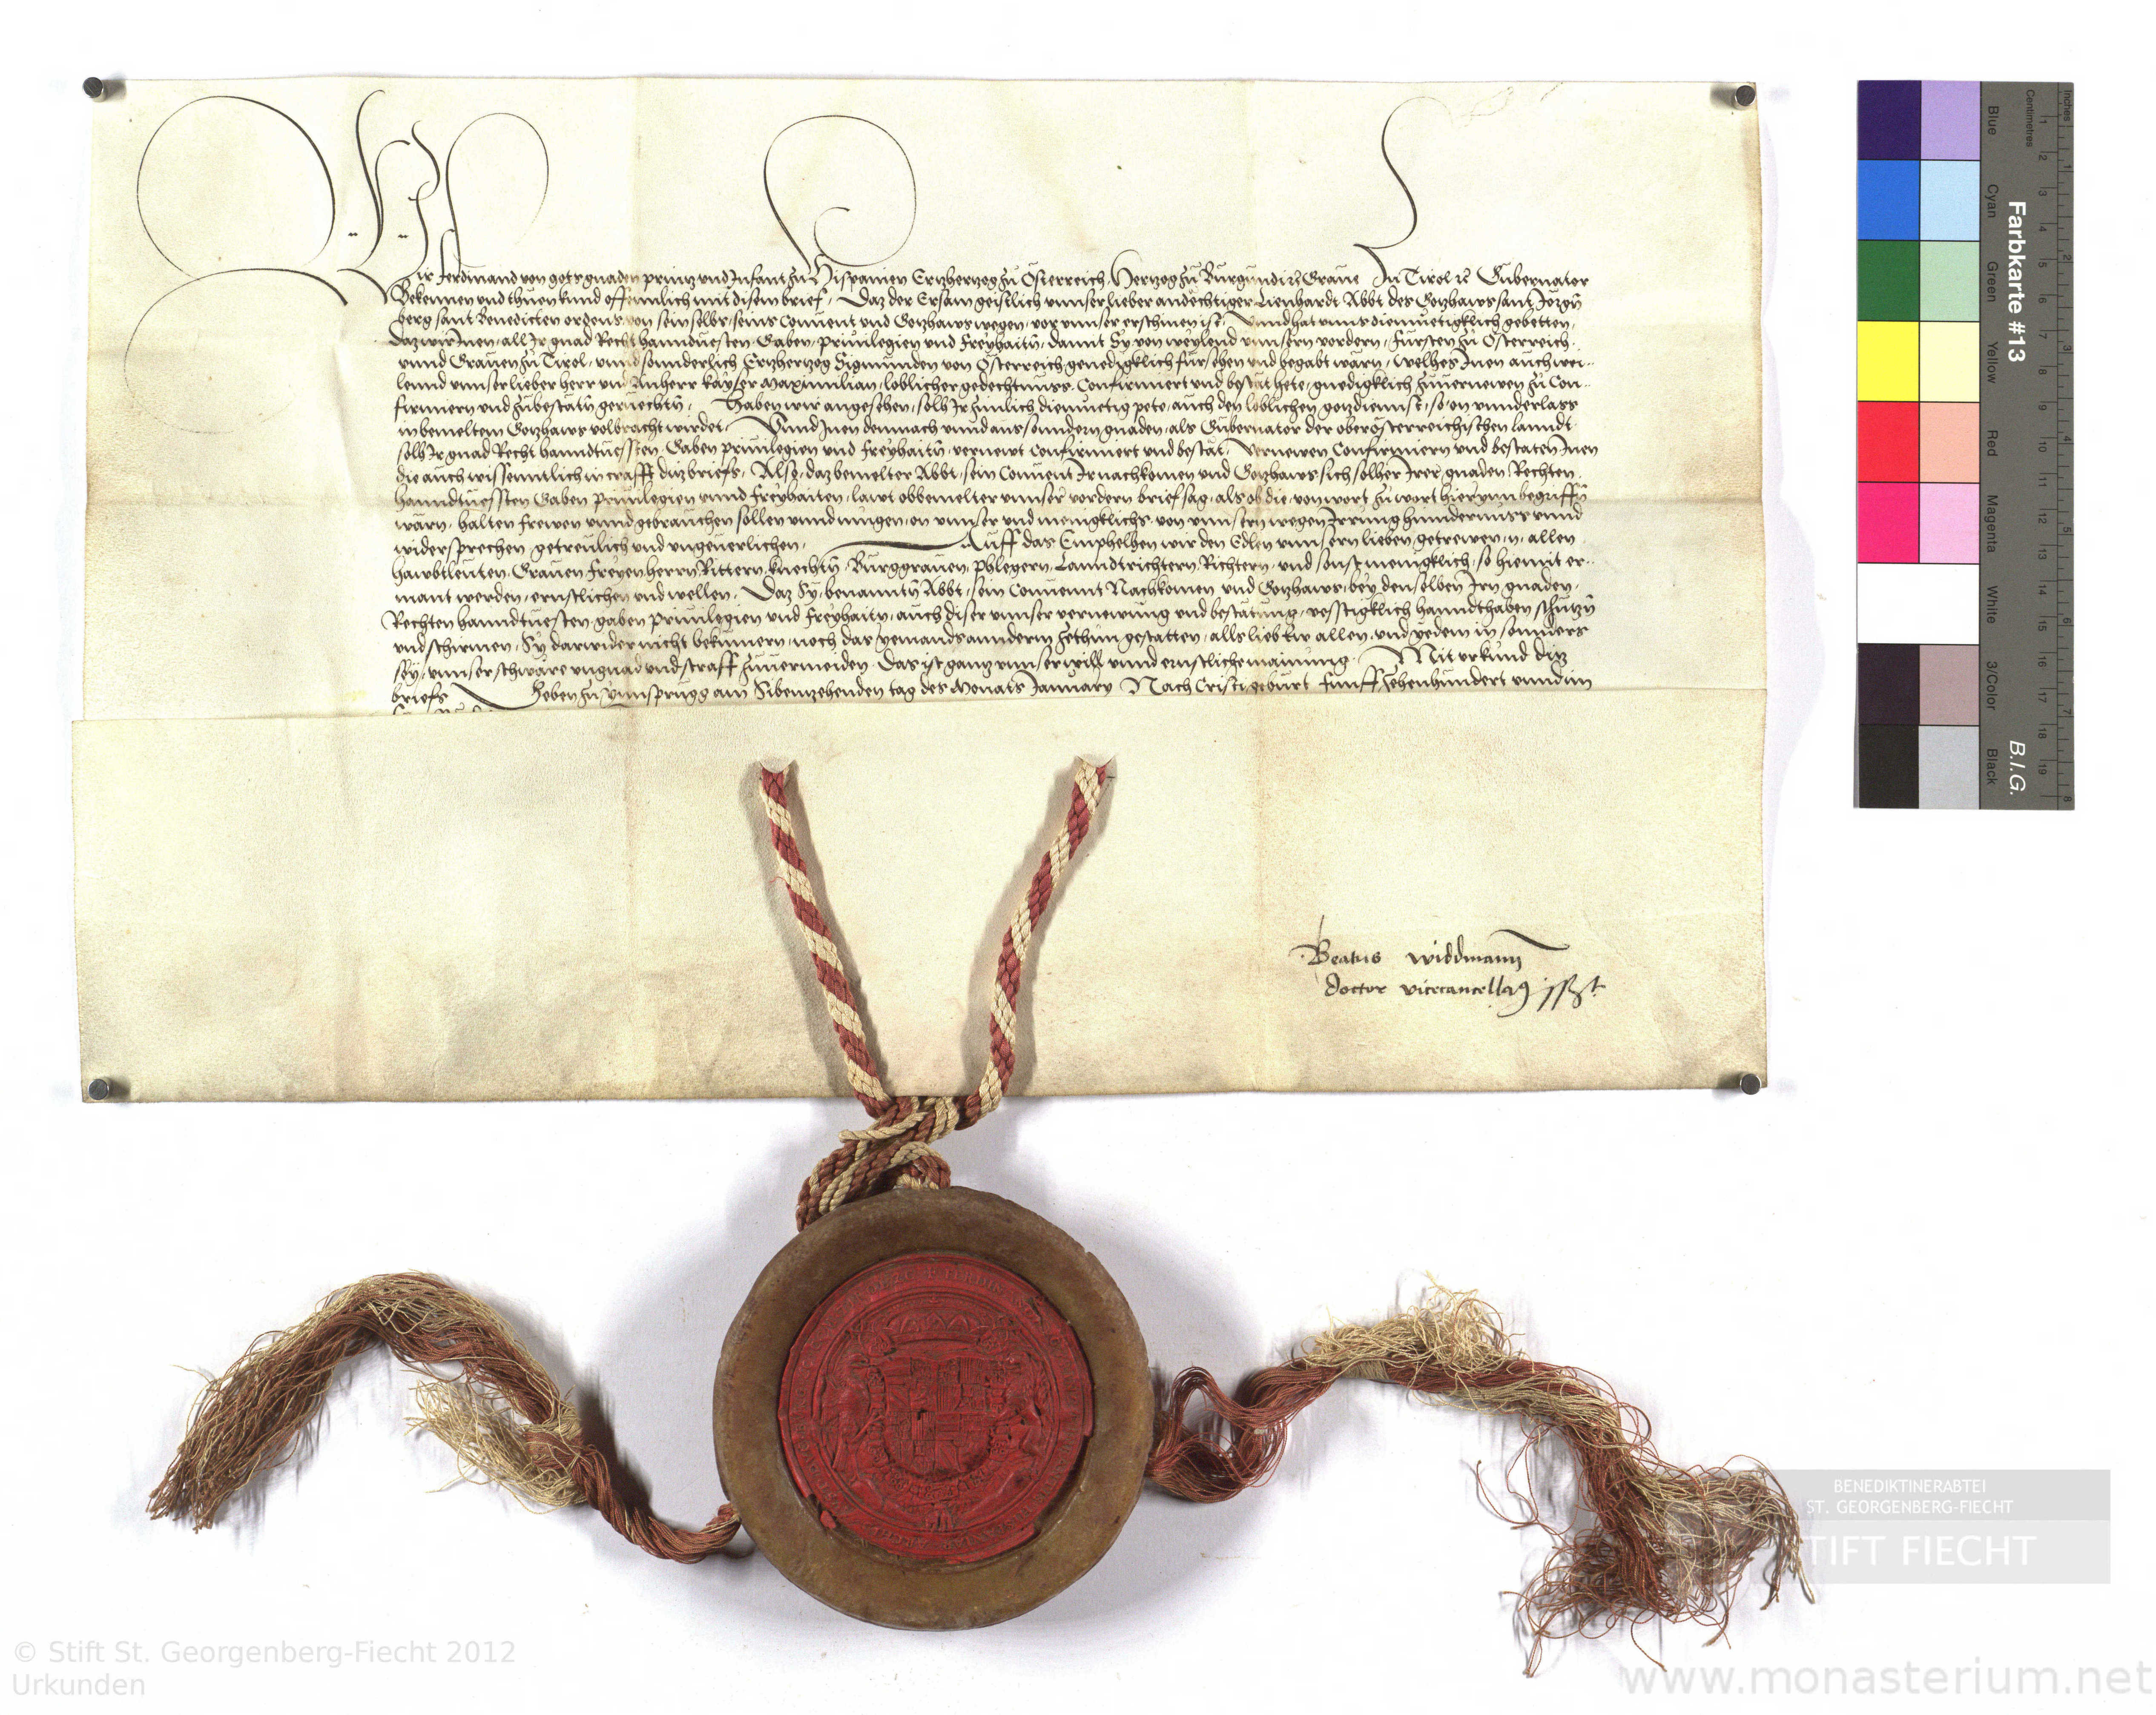 Wir Ferdinand von gots gnaden prinz vnd Infant zu Hispanien Ertzherzog zu Österreich, Herzog zu Burgundi rc Graue In Tirol rc Gubernator
Bekennen vnd thuen kund offennlich mit disem brief, Daz der Ersam geistlich vnnser lieber andechtiger Lienhardt Abbt des Gotzhaws sant Jorgn
berg sant Benedicten ordens von sein selbs, seins Conuent vnd Gotzhaws wegen, vor vnnser erschinen ist, Vnnd hat vnns diemuetigklich gebetten,
Daz wir Inen, all Ir gnad Recht hanndtuesten, Gaben, priuilegien vnd Freyhaitn, damit Sy von weylend vnnsern vordern, Fürsten zu Österreich,
vnnd Grauen zu Tirol, vnnd sonnderlich Ertzherzog Sigmunden von Österreich genedigklich fürsehen vnd begabt wärn, welhes Inen auch wei-
lennd vnnser lieber herr vnd Anherr kayser Maximilian, loblicher gedechtnuss, Confirmiert vnd bestät hete, gnedigklich zuuernewen zu Con-
firmiern vnd zubestätn geruechtn, Haben wir angesehen, solh Ir zimlich diemuetig pete, auch den loblichen gotzdiennst, so on vnnderlass
in bemeltem Gotzhaws volbracht wirdet, Vnnd Inen demnach vnnd aus sonndern gnaden, als Gubernator der oberösterreichischen lanndt
solh Ir gnad Recht hanndtuessten, Gaben priuilegien vnd Freyhaitn, vernewt Confirmiert vnd bestät, Vernewen Confirmiern vnd bestäten Inen
die auch wissenntlich in crafft ditz briefs, Also, daz bemelter Abbt, sein Conuent Ir nachkomen vnd Gotzhaws sich solher Irer gnaden Rechten,
hanndtuessten Gaben priuilegien vnnd Freyhaiten, lawt obbemelter vnnser vordern brief sag, als ob die, von wort zu wort hierynn begriffn
wärn, halten frewen vnnd gebrauchen sollen vnnd mügen, on vnnser vnd menigklichs, von vnnsern wegen Irrung hinndernuss vnnd
widersprechen getreulich vnd vngeuerlichen, Auff das Emphelhen wir den Edlen vnnsern lieben, getrewen, n, allen
hawbtleuten, Grauen Freyen herrn Rittern, knechtn, Burggrauen, Phlegern, Lanndtrichtern, Richtern, vnd sonst menigklich, so hiemit er-
mant werden, ernstlichen vnd wellen, Daz Sy, benanntn Abbt, sein Conuent Nachkomen vnd Gotzhaws, bey denselben Irn gnaden,
Rechten hanndtuesten, gaben priuilegien vnd Freyhaitn, auch diser vnnser vernewung vnd bestätung, vesstigklich hanndthaben schutzn
vnd schirmen, Sy darwider nicht bekümern, noch das yemands anndern zethun gestatten, alls lieb Ew allen, vnd yedem in sonnders
sey, vnnser schwäre vngnad vnd straff zuuermeiden, Das ist gantz vnnser will vnnd ernstliche mainung, Mit vrkund ditz
briefs Geben zu Ynnsprugg am Sibenzehenden tag des Monats January Nach Cristi geburt funffzehenhundert vnnd im
Beatus widdmann
doctor vicecancellarius sst
Farbkarte #13
B.I.G.
Inches
Centimetres
Blue
Cyan
Green
Yellow
Red
Magenta
White
3/Color
Black
1 2 3 4 5 6 7 8 9 10 11 12 13 14 15 16 17 18 19
1 2 3 4 5 6 7 8
BENEDIKTINERABTEI
ST. GEORGENBERG-FIECHT
STIFT FIECHT
© Stift St. Georgenberg-Fiecht 2012
Urkunden
www.monasterium.net